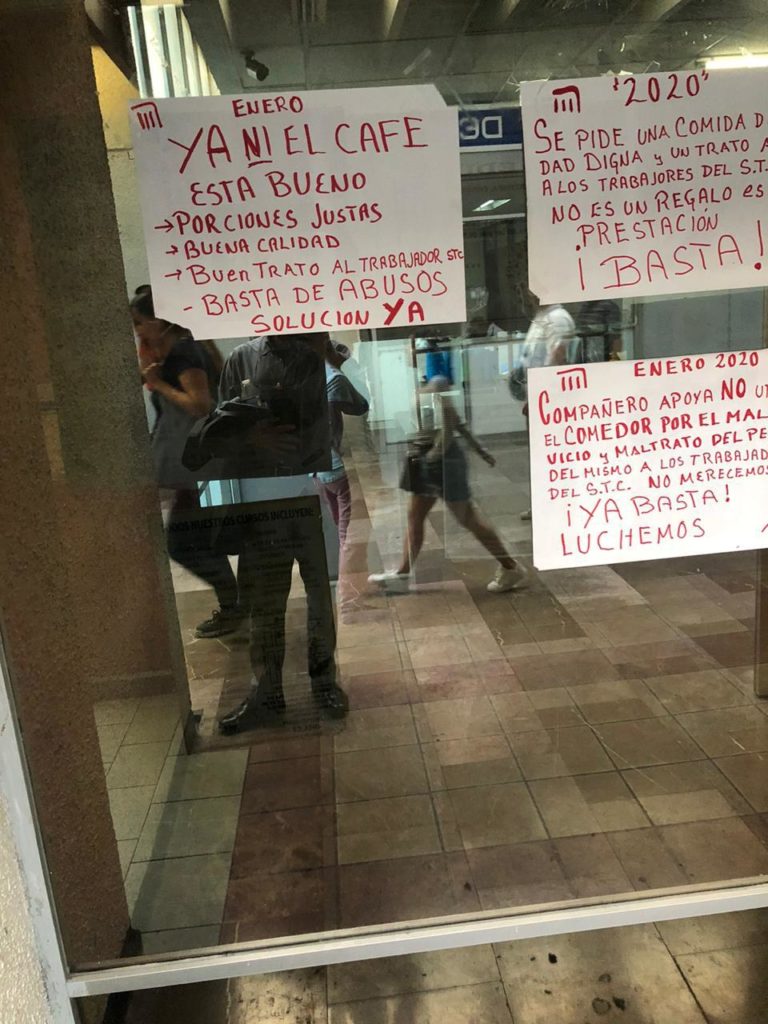 ENERO
YA NI EL CAFE
ESTA BUENO
→PORCIONES JUSTAS
→BUENA CALIDAD
→BUEN TRATO AL TRABAJADOR STC
- BASTA DE ABUSOS
SOLUCION YA
"2020"
SE PIDE UNA COMIDA D
DAD DIGNA y UN TRATO A
A LOS TRABAJORES DEL S.T.
NO ES UN REGALO es
PRESTACIÓN
¡BASTA!
ENERO 2020
COMPAÑERO APOYA NO U
EL COMEDOR POR EL MAL
VICIO y MALTRATO DEL PE
DEL MISMO A LOS TRABAJAD
DEL S.T.C. NO MERECEMOS
¡YA BASTA!
LUCHEMOS
DE
DOS NUESTROS CURSOS INCLUYEN: